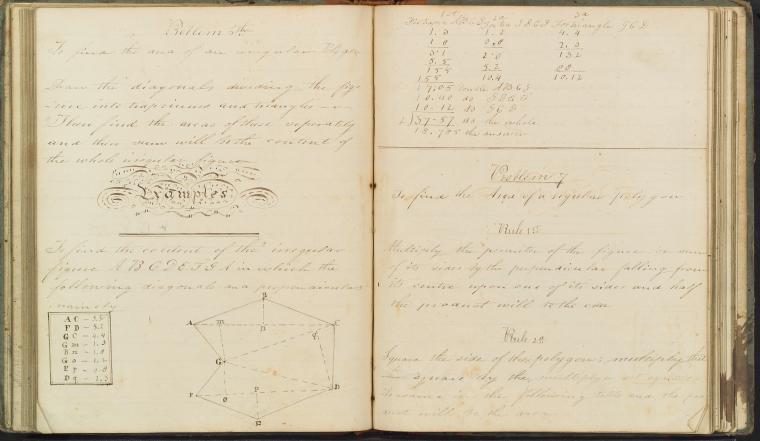 Problem 6th
To find the area of an irregular Polygon
Draw the diagonals dividing the fig-
-ure into trapeziums and triangles
Then find the areas of these separately
and their sum will be the content of
the whole irregular figure
Examples
To find the content of the irregular
figure A B C D E F G A in which the
following diagonals and perpendiculars
namely
A C - 5.5
F D - 5.2
G C - 4.4
G m - 1.3
B n - 1.8
G o - 1.2
E p - 0.8
D q - 2.3
B
A m n C
q
G
F o P D
E
1st 2d 3d
For triangle G C D
1.3 1.2 4.4
1.8 0.8 2.3
3.1 2.0 132
5.5 5.2 88
155 10.4 10.12
155
17.05 double A B C G
10.40 do
10.12 do G C D
2)37.57 do the whole
18.785 the answer
Problem 7
To find the Area of a regular polygon
Rule 1st
Multiply the perimeter of the figure or sum
of its sides by the perpendicular falling from
its centre upon one of its sides and half
the product will be the area
Rule 2d
Square the side of the polygon: multiply that
square by the multiplier
in the following table and the pro-
duct will be the area